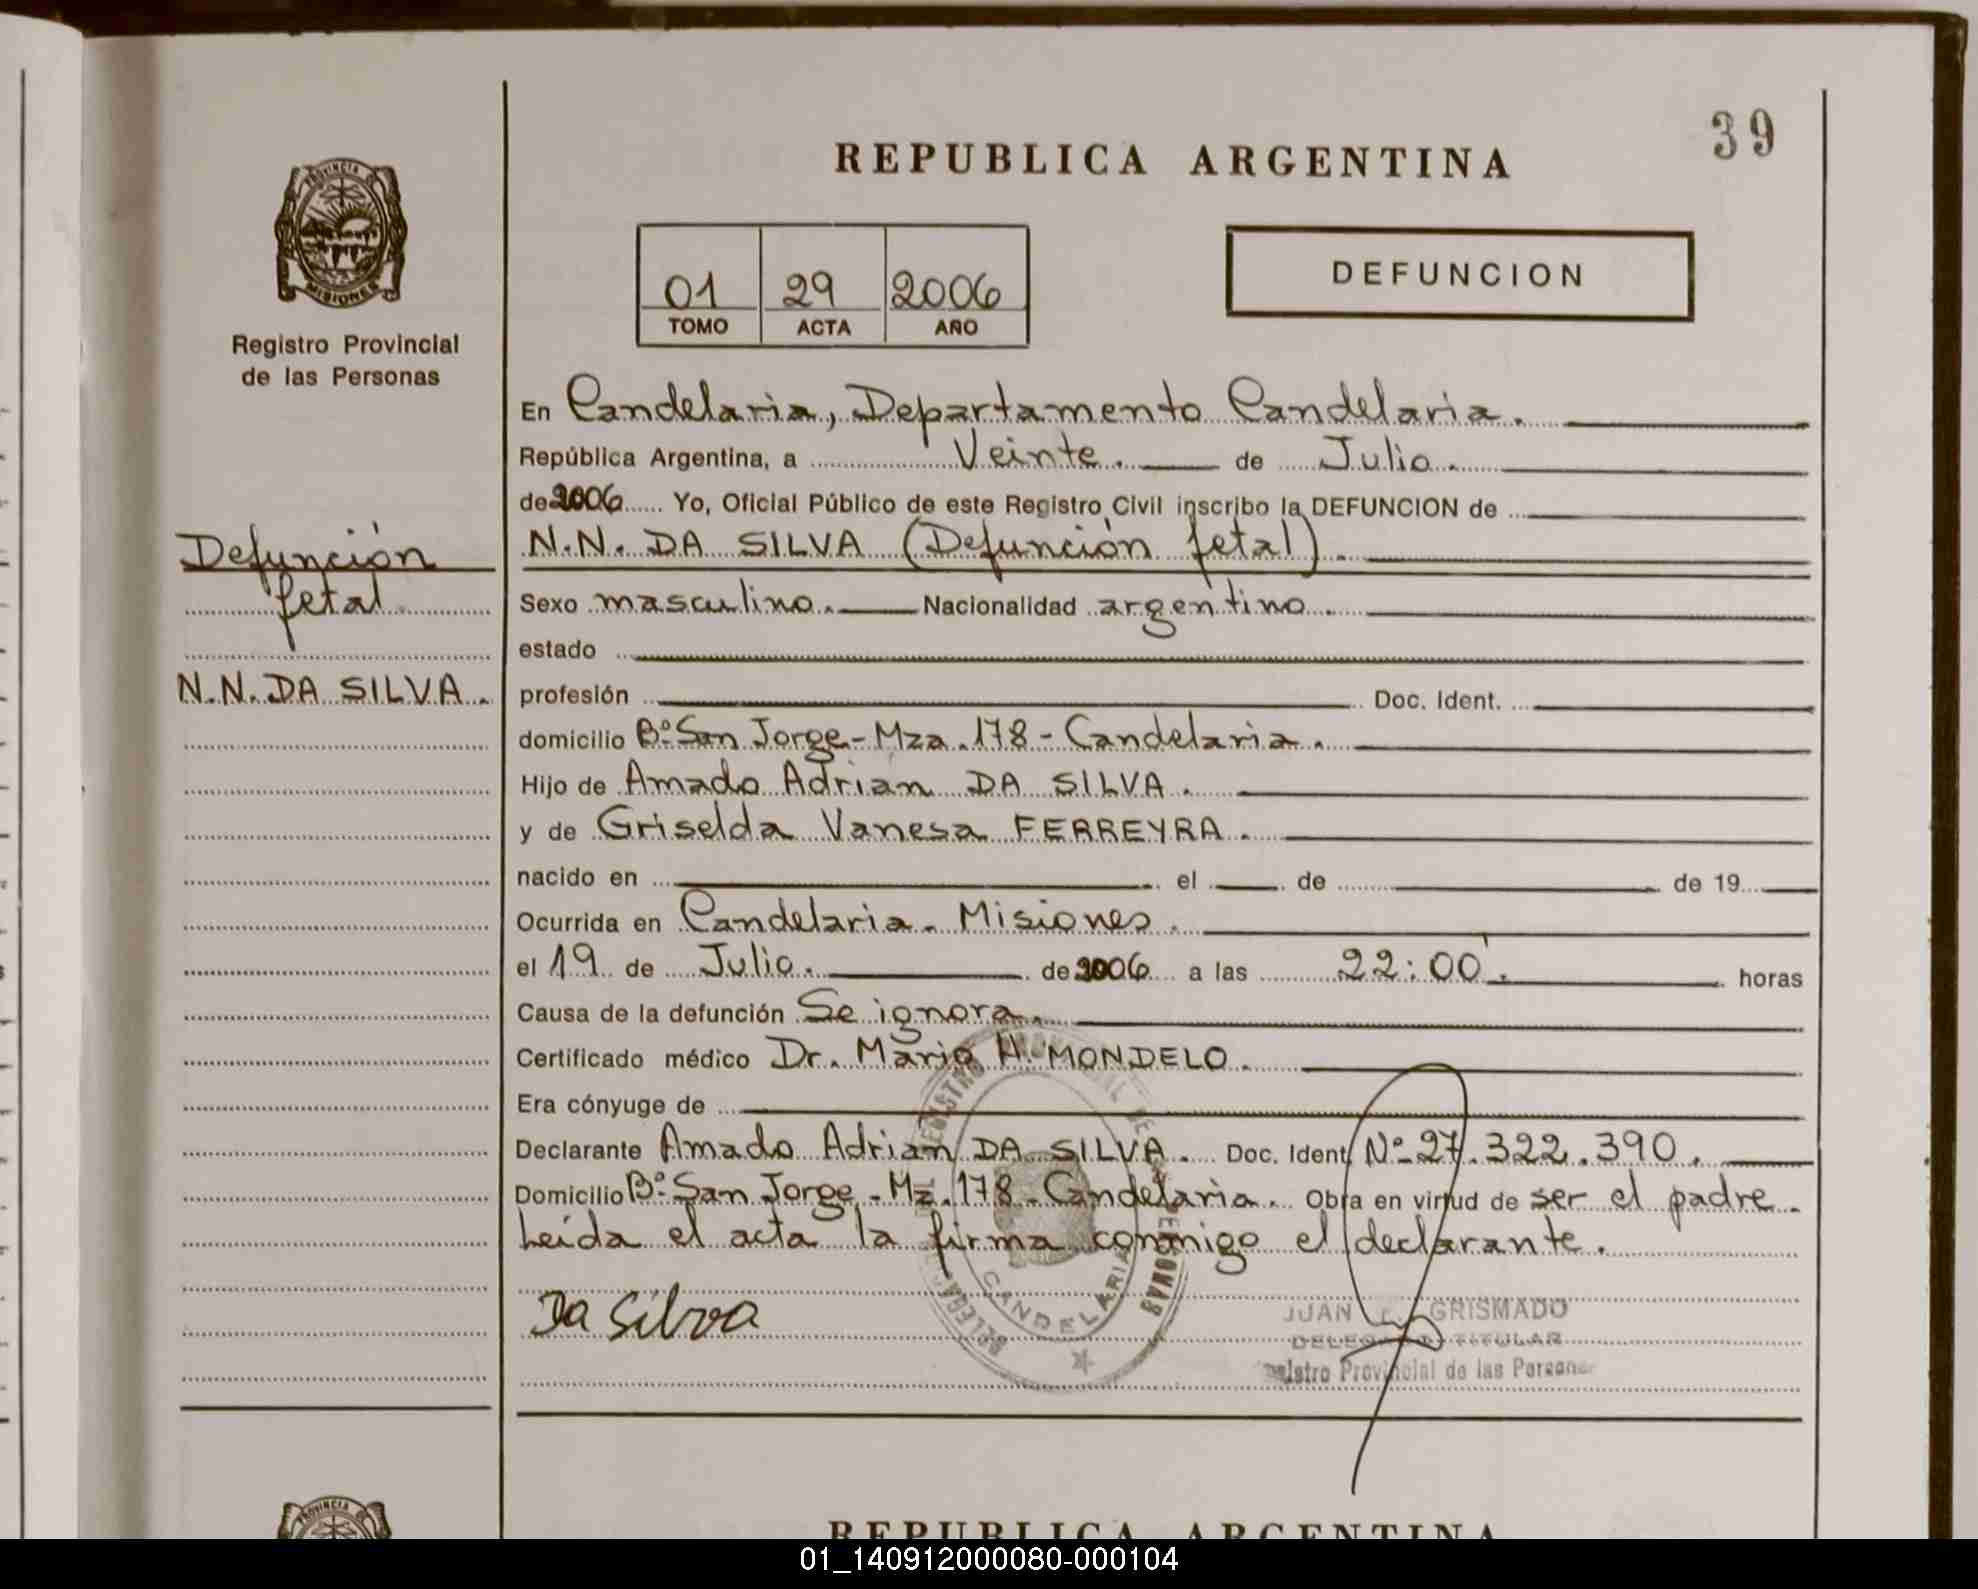 39
REPUBLICA ARGENTINA
PROVINCIA D
MISIONES
Registro Provincial
de las Personas
01 29 2006
TOMO ACTA AÑO
DEFUNCION
Defunción
fetal
N.N. DA SILVA.
En Candelaria, Departamento Candelaria.
República Argentina, a Veinte. de Julio.
de 2006 Yo, Oficial Público de este Registro Civil inscribo la DEFUNCION de
N.N. DA SILVA (Defunción fetal).
Sexo masculino. Nacionalidad argentino.
estado
profesión Doc. Ident.
domicilio Bº San Jorge - Mza. 178 - Candelaria.
Hijo de Amado Adrian DA SILVA.
y de Griselda Vanesa FERREYRA.
nacido en el de de 19
Ocurrida en Candelaria. Misiones.
el 19 de Julio. de 2006 a las 22:00'. horas
Causa de la defunción Se ignora.
Certificado médico Dr. Mario H. MONDELO.
Era cónyuge de
Declarante Amado Adrian DA SILVA. Doc. Ident. Nº 27.322.390.
Domicilio Bº San Jorge - Mz. 178 - Candelaria. Obra en virtud de ser el padre.
Leída el acta la firma conmigo el declarante.
Da Silva
CANDELARIA
JUAN GRISMADO
DELEGADO TITULAR
Registro Provincial de las Personas
PROVINCIA
REPUBLICA ARGENTINA
01_140912000080-000104